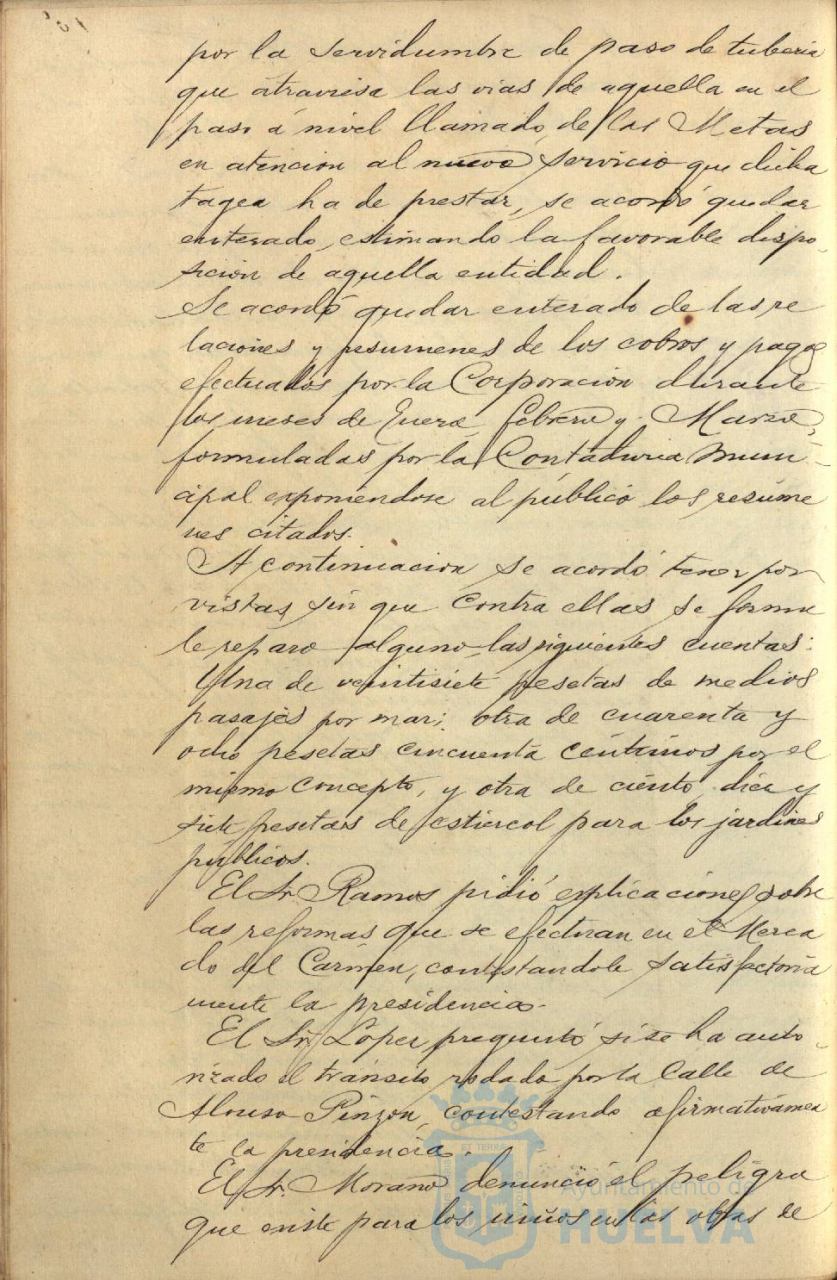 por la servidumbre de paso de tuberia
que atraviesa las vias de aquella en el
paso á nivel llamado de las Metas
en atencion al nuevo servicio que dicha
tagea ha de prestar, se acordó quedar
enterado, estimando la favorable dispo-
sicion de aquella entidad.
Se acordó quedar enterado de las re
laciones y resumenes de los cobros y pagos
efectuados por la Corporacion durante
los meses de Enero Febrero y Marzo,
formuladas por la Contaduria Muni-
cipal exponiendose al público los resúme
nes citados.
A continuacion se acordó tener por
vistas, sin que contra ellas se formu
le reparo alguno, las siguientes cuentas:
Una de veintisiete pesetas de medios
pasajes por mar; otra de cuarenta y
ocho pesetas cincuenta céntimos por el
mismo concepto, y otra de ciento diez y
siete pesetas de estiercol para los jardines
publicos.
El Sr. Ramos pidió explicaciones sobre
las reformas que se efectuan en el Merca
do del Carmen, contestandole satisfactoria
mente la presidencia.
El Sr. Lopez preguntó si se ha auto-
rizado el tránsito rodado por la Calle de
Alonso Pinzon, contestando afirmativamen
te la presidencia.
El Sr. Morano denunció el peligro
que existe para los niños en las obras de
Ayuntamiento de
HUELVA